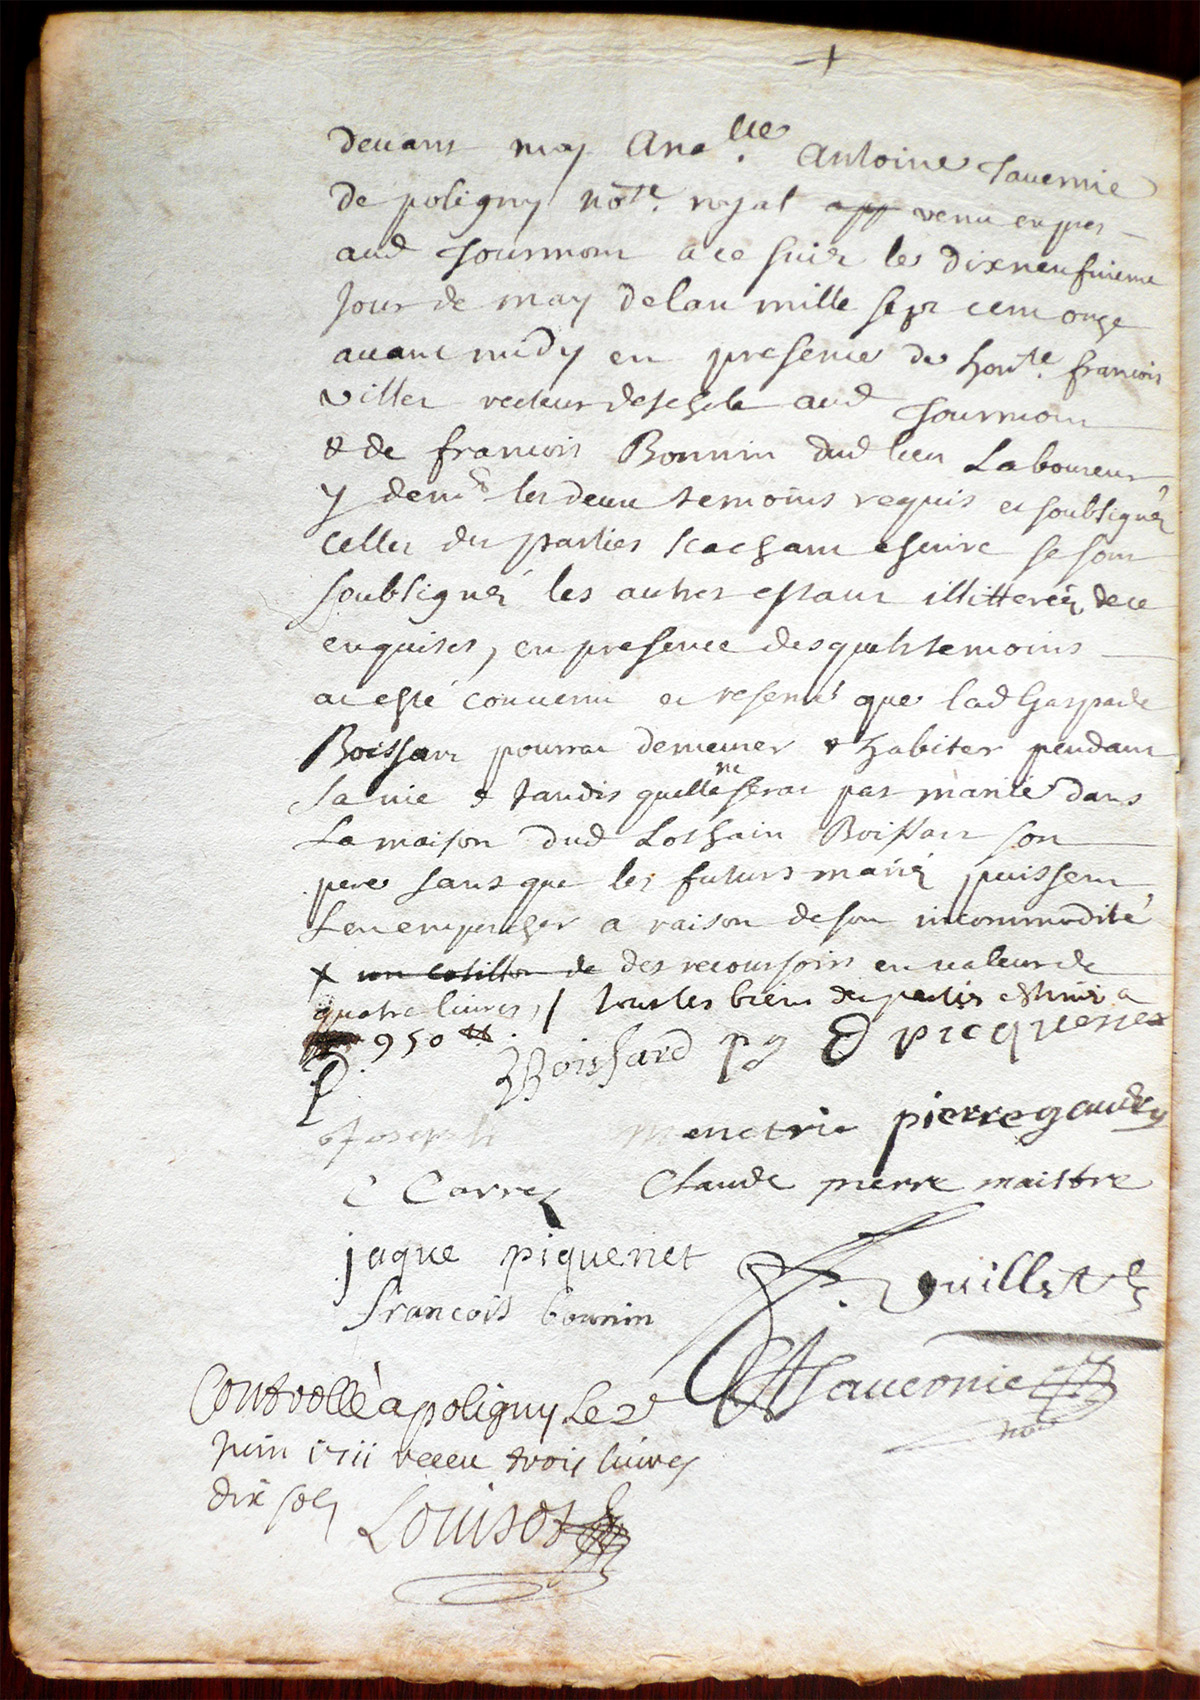 devant moy Anatoille Antoine Tavernie
de poligny no.re royal app venu expres
aud Tourmont a ce suiet le dixneufvieme
Jour de may delan mille sept cent onze
avant midy en presence de hon.te francois
villet recteur deschole aud Tourmont
& de francois Bonnin dud lieu Laboureur
y dem.t les deux temoins requis et soubsignéz
celles des parties scachant escrire se sont
soubsignéz les autres estant illitteréez de ce
enquises, en presence desquels temoins
at esté convenu et reservé que lad Gasparde
Boissart pourrat demeurer & habiter pendant
sa vie & tandis quelle ne serat pas mariée dans
La maison dud Lothain Boissart son
pere sans que les futurs mariéz puissent
Len empescher a raison de son incommodité
+ un cotillon de des recoursoirs en valeur de
quatre livres, / tous les biens des parties estiméz a
950
Boissard pg D picquenet
Joseph menetrie pierre gaudry
C Carrez Claude pierre maistre
jaque piquenet
francois bonnin
F. Vuillet
A A Tavernie
not
Controllé a poligny Le 2e
Juin 1711 receu trois livres
dix sols Louisot